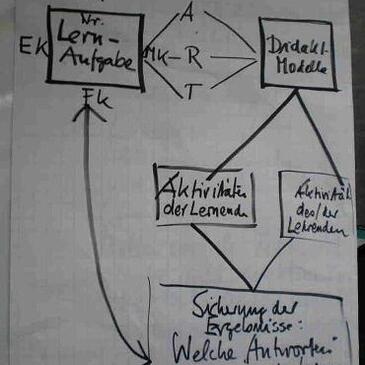 Nr.
Lern-
Aufgabe
EK
MK
FK
A
R
T
Didakt.
Modelle
Aktivitäten
der Lernende
Aktivität
des/der
Lehrenden
Sicherung der
Ergebnisse:
Welche Antworten